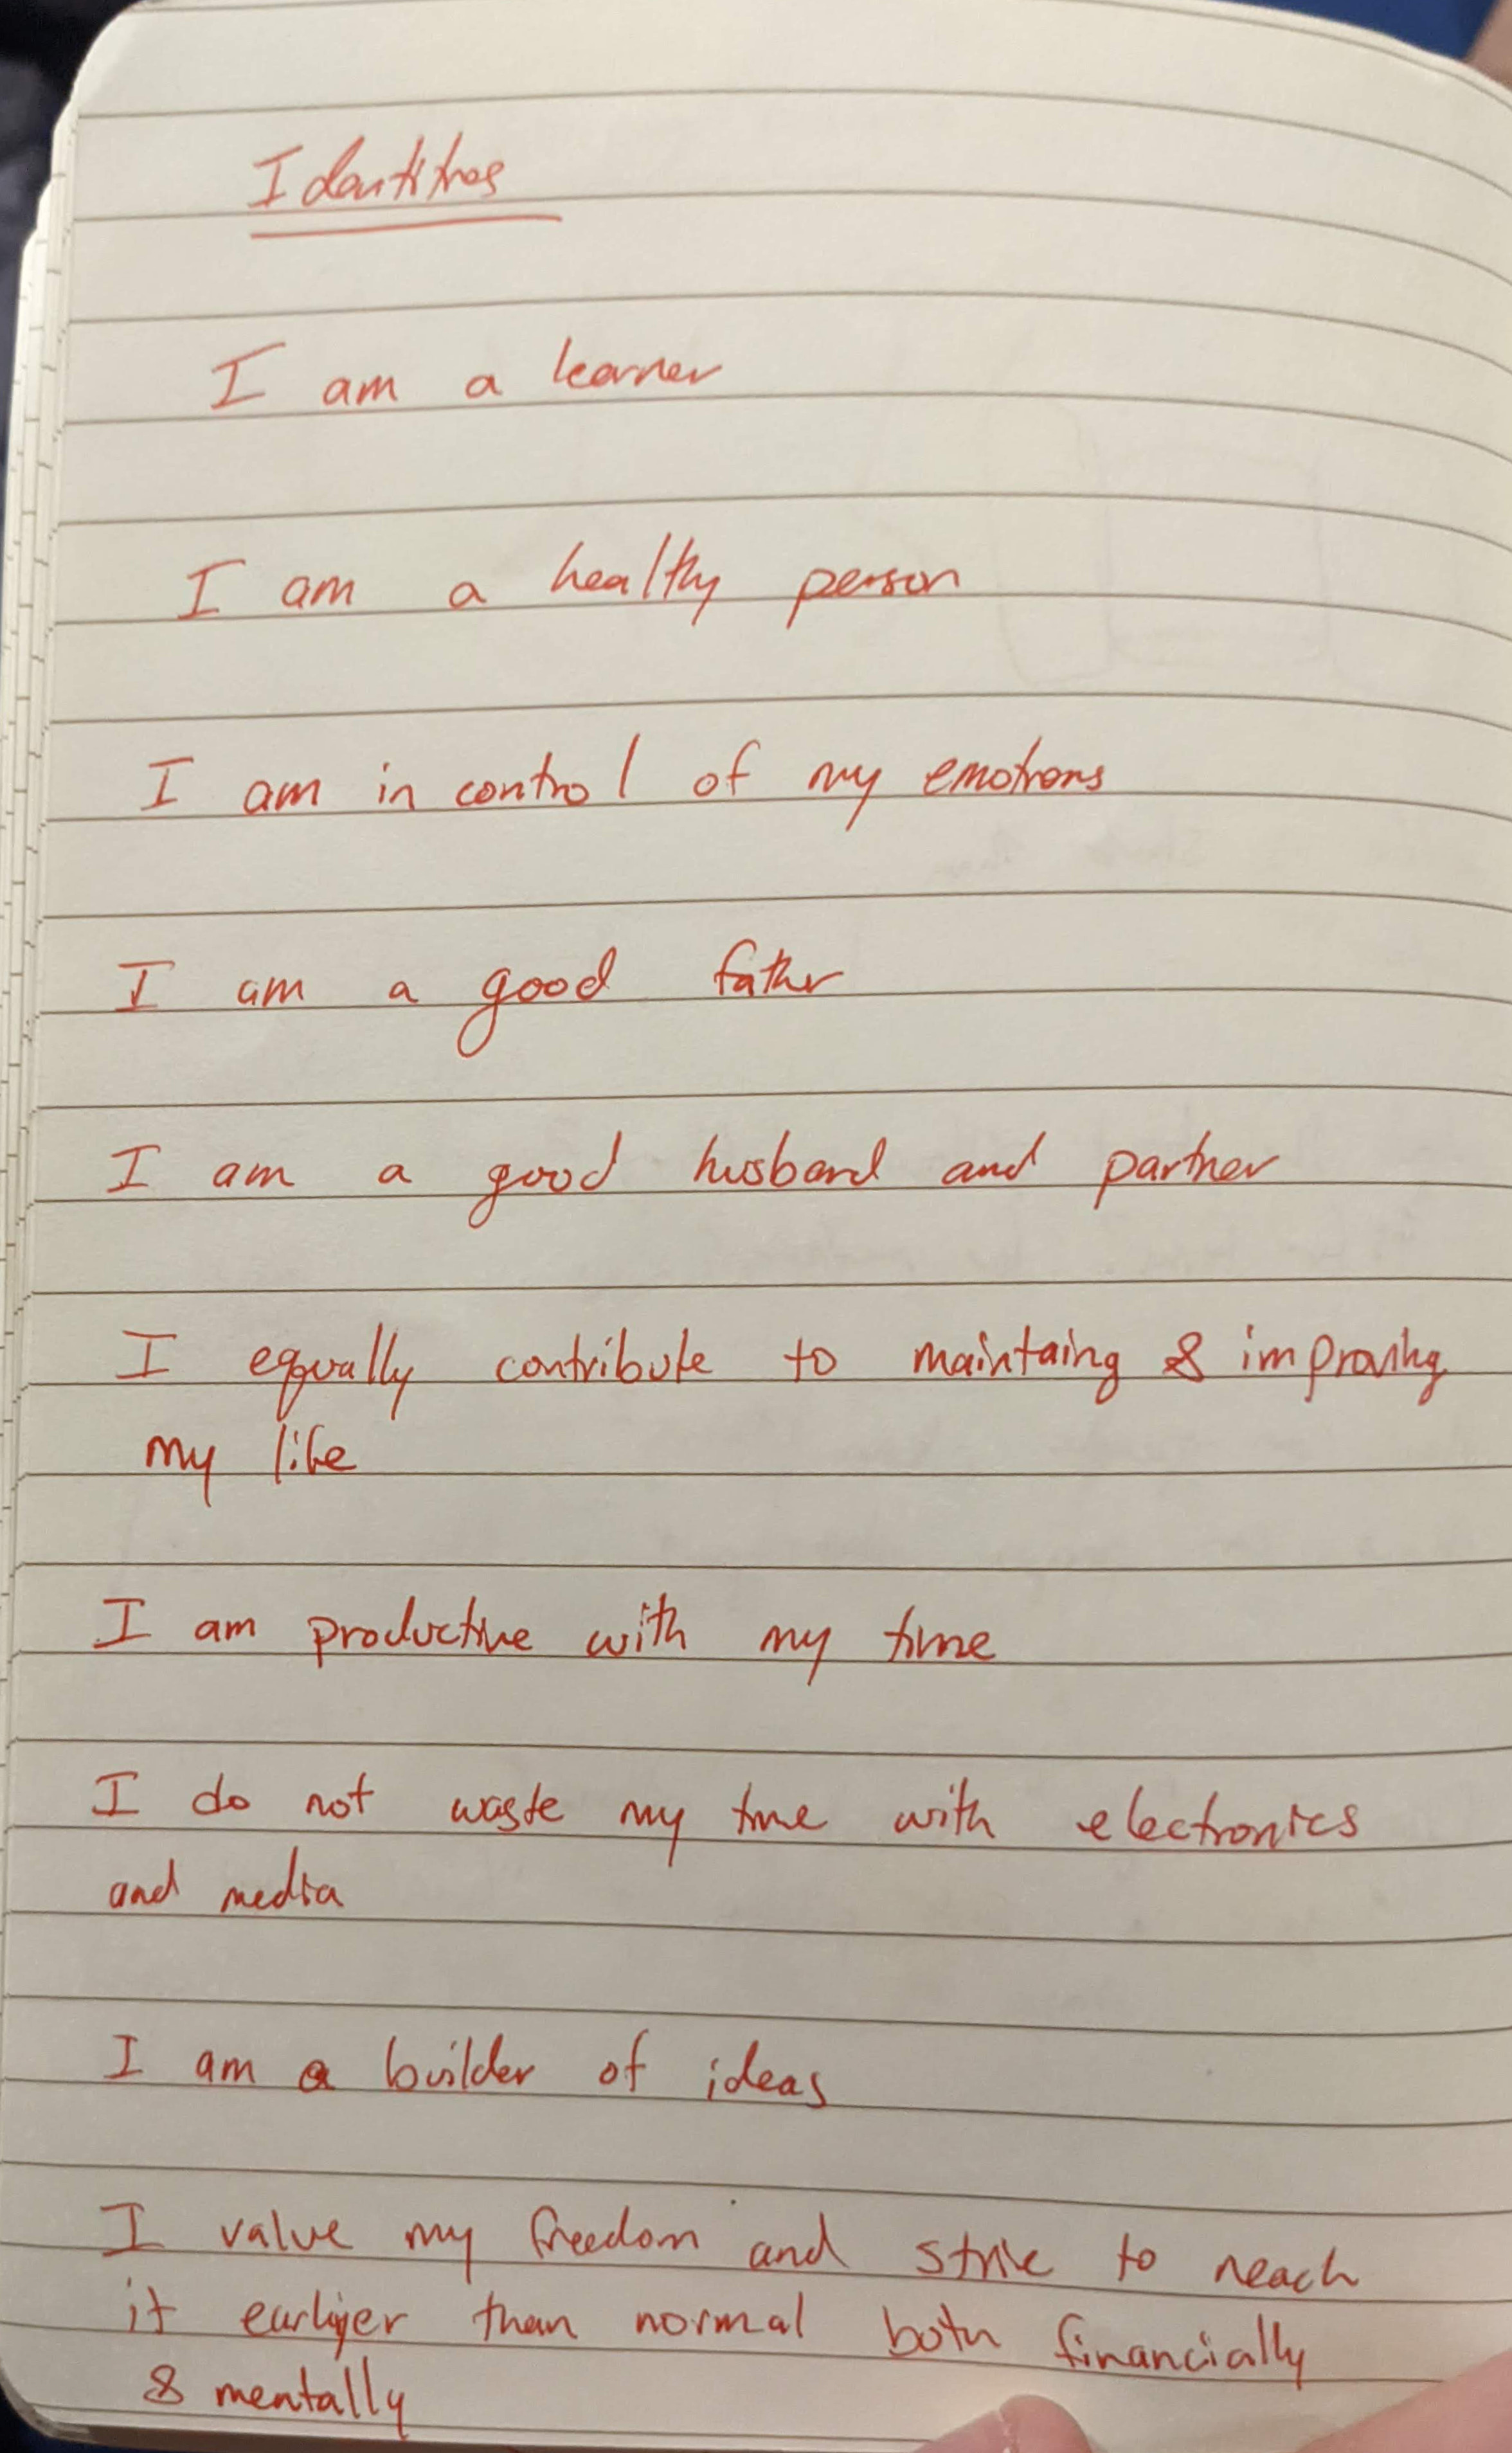 Identities
I am a learner
I am a healthy person
I am in control of my emotions
I am a good father
I am a good husband and partner
I equally contribute to maintaing & improving
my life
I am productive with my time
I do not waste my time with electronics
and media
I am a builder of ideas
I value my freedom and strive to reach
it earlier than normal both financially
& mentally